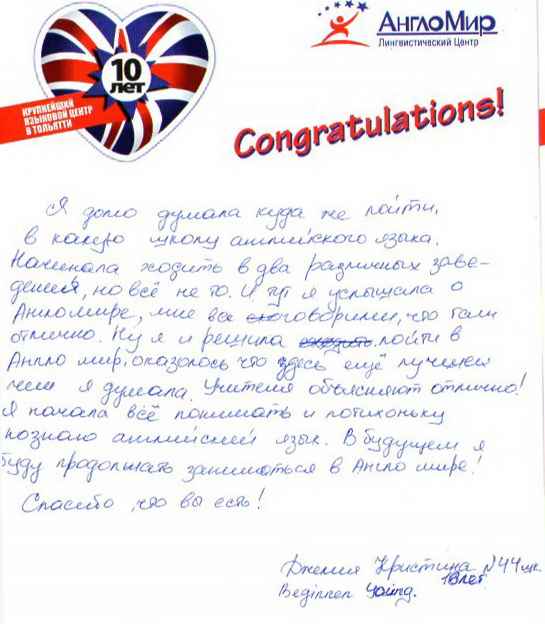 АнглоМир
Лингвистический Центр
10
лет
КРУПНЕЙШИЙ
ЯЗЫКОВОЙ ЦЕНТР
В ТОЛЬЯТТИ
Congratulations!
Я долго думала куда же пойти,
в какую школу английского языка.
Начинала ходить в два различных заве-
дения, но всё не то. И тут я услышала о
Англомире, мне все говорили, что там
отлично. Ну я и решила пойти в
Англо мир, оказалось что здесь ещё лучше
чем я думала. Учителя объясняют отлично!
Я начала всё понимать и потихоньку
познаю английский язык. В будущем я
буду продолжать заниматься в Англо мире!
Спасибо, что вы есть!
Кристина №44 шк.
Beginner Young. 13 лет